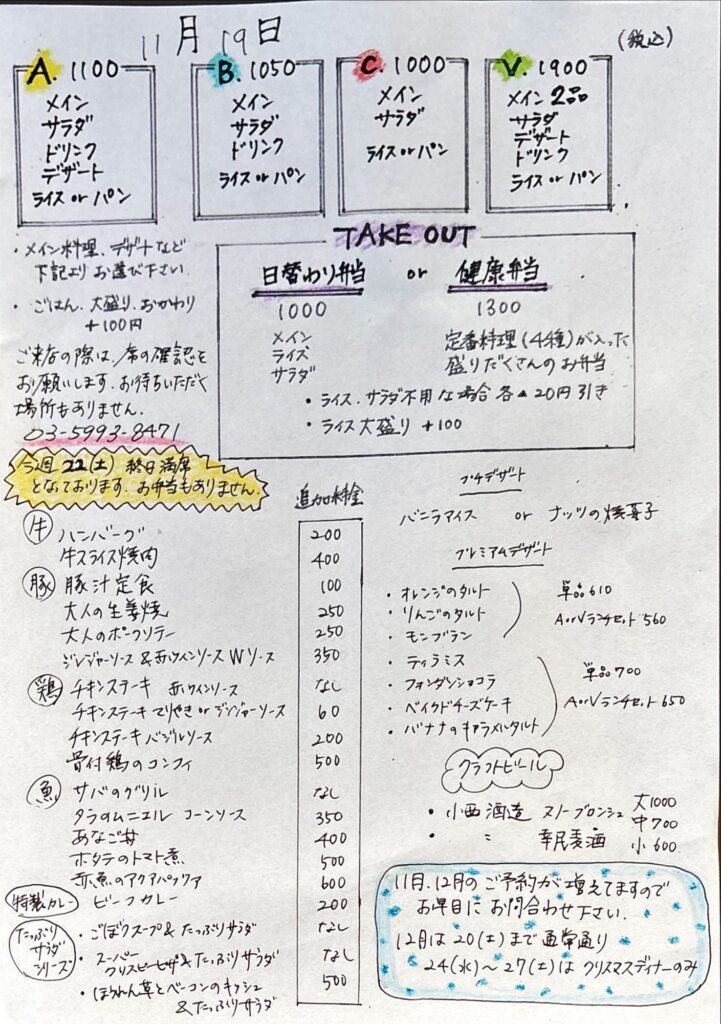 11月19日
(税込)
A. 1100
メイン
サラダ
ドリンク
デザート
ライス or パン
B. 1050
メイン
サラダ
ドリンク
ライス or パン
C. 1000
メイン
サラダ
ライス or パン
V. 1900
メイン 2品
サラダ
デザート
ドリンク
ライス or パン
・メイン料理、デザートなど
下記より お選び下さい
・ごはん、大盛り、おかわり
+100円
ご来店の際は、席の確認を
お願いします。お待ちいただく
場所もありません。
03-5993-8471
今週 22(土) 終日満席
となっております。お弁当もありません。
TAKE OUT
日替わり弁当 or 健康弁当
1000
メイン
ライス
サラダ
1300
定番料理(4種)が入った
盛りだくさんのお弁当
・ライス、サラダ不用な場合 各▲20円引き
・ライス大盛り +100
追加料金
牛 ハンバーグ 200
牛スライス焼肉 400
豚 豚汁定食 100
大人の生姜焼 250
大人のポークソテー 250
ジンジャーソース&赤ワインソース Wソース 350
鶏 チキンステーキ 赤ワインソース なし
チキンステーキ てりやき or ジンジャーソース 60
チキンステーキ バジルソース 200
骨付鶏のコンフィ 500
魚 サバのグリル なし
タラのムニエル コーンソース 350
あなご丼 400
ホタテのトマト煮 500
赤魚のアクアパッツァ 600
特製カレー ビーフカレー 200
たっぷりサラダシリーズ
・ごぼうスープ&たっぷりサラダ なし
・スーパークリスピーピザ&たっぷりサラダ なし
・ほうれん草とベーコンのキッシュ
&たっぷりサラダ 500
プチデザート
バニラアイス or ナッツの焼菓子
プレミアムデザート
・オレンジのタルト
・りんごのタルト
・モンブラン
単品 610
AorVランチセット 560
・ティラミス
・フォンダンショコラ
・ベイクドチーズケーキ
・バナナのキャラメルタルト
単品 700
AorVランチセット 650
クラフトビール
・小西酒造 スノーブロンシュ
・〃 幸民麦酒
大1000
中700
小600
11月、12月のご予約が増えてますので
お早目に お問合わせ下さい。
12月は20(土)まで通常通り
24(水)〜27(土)は クリスマスディナーのみ